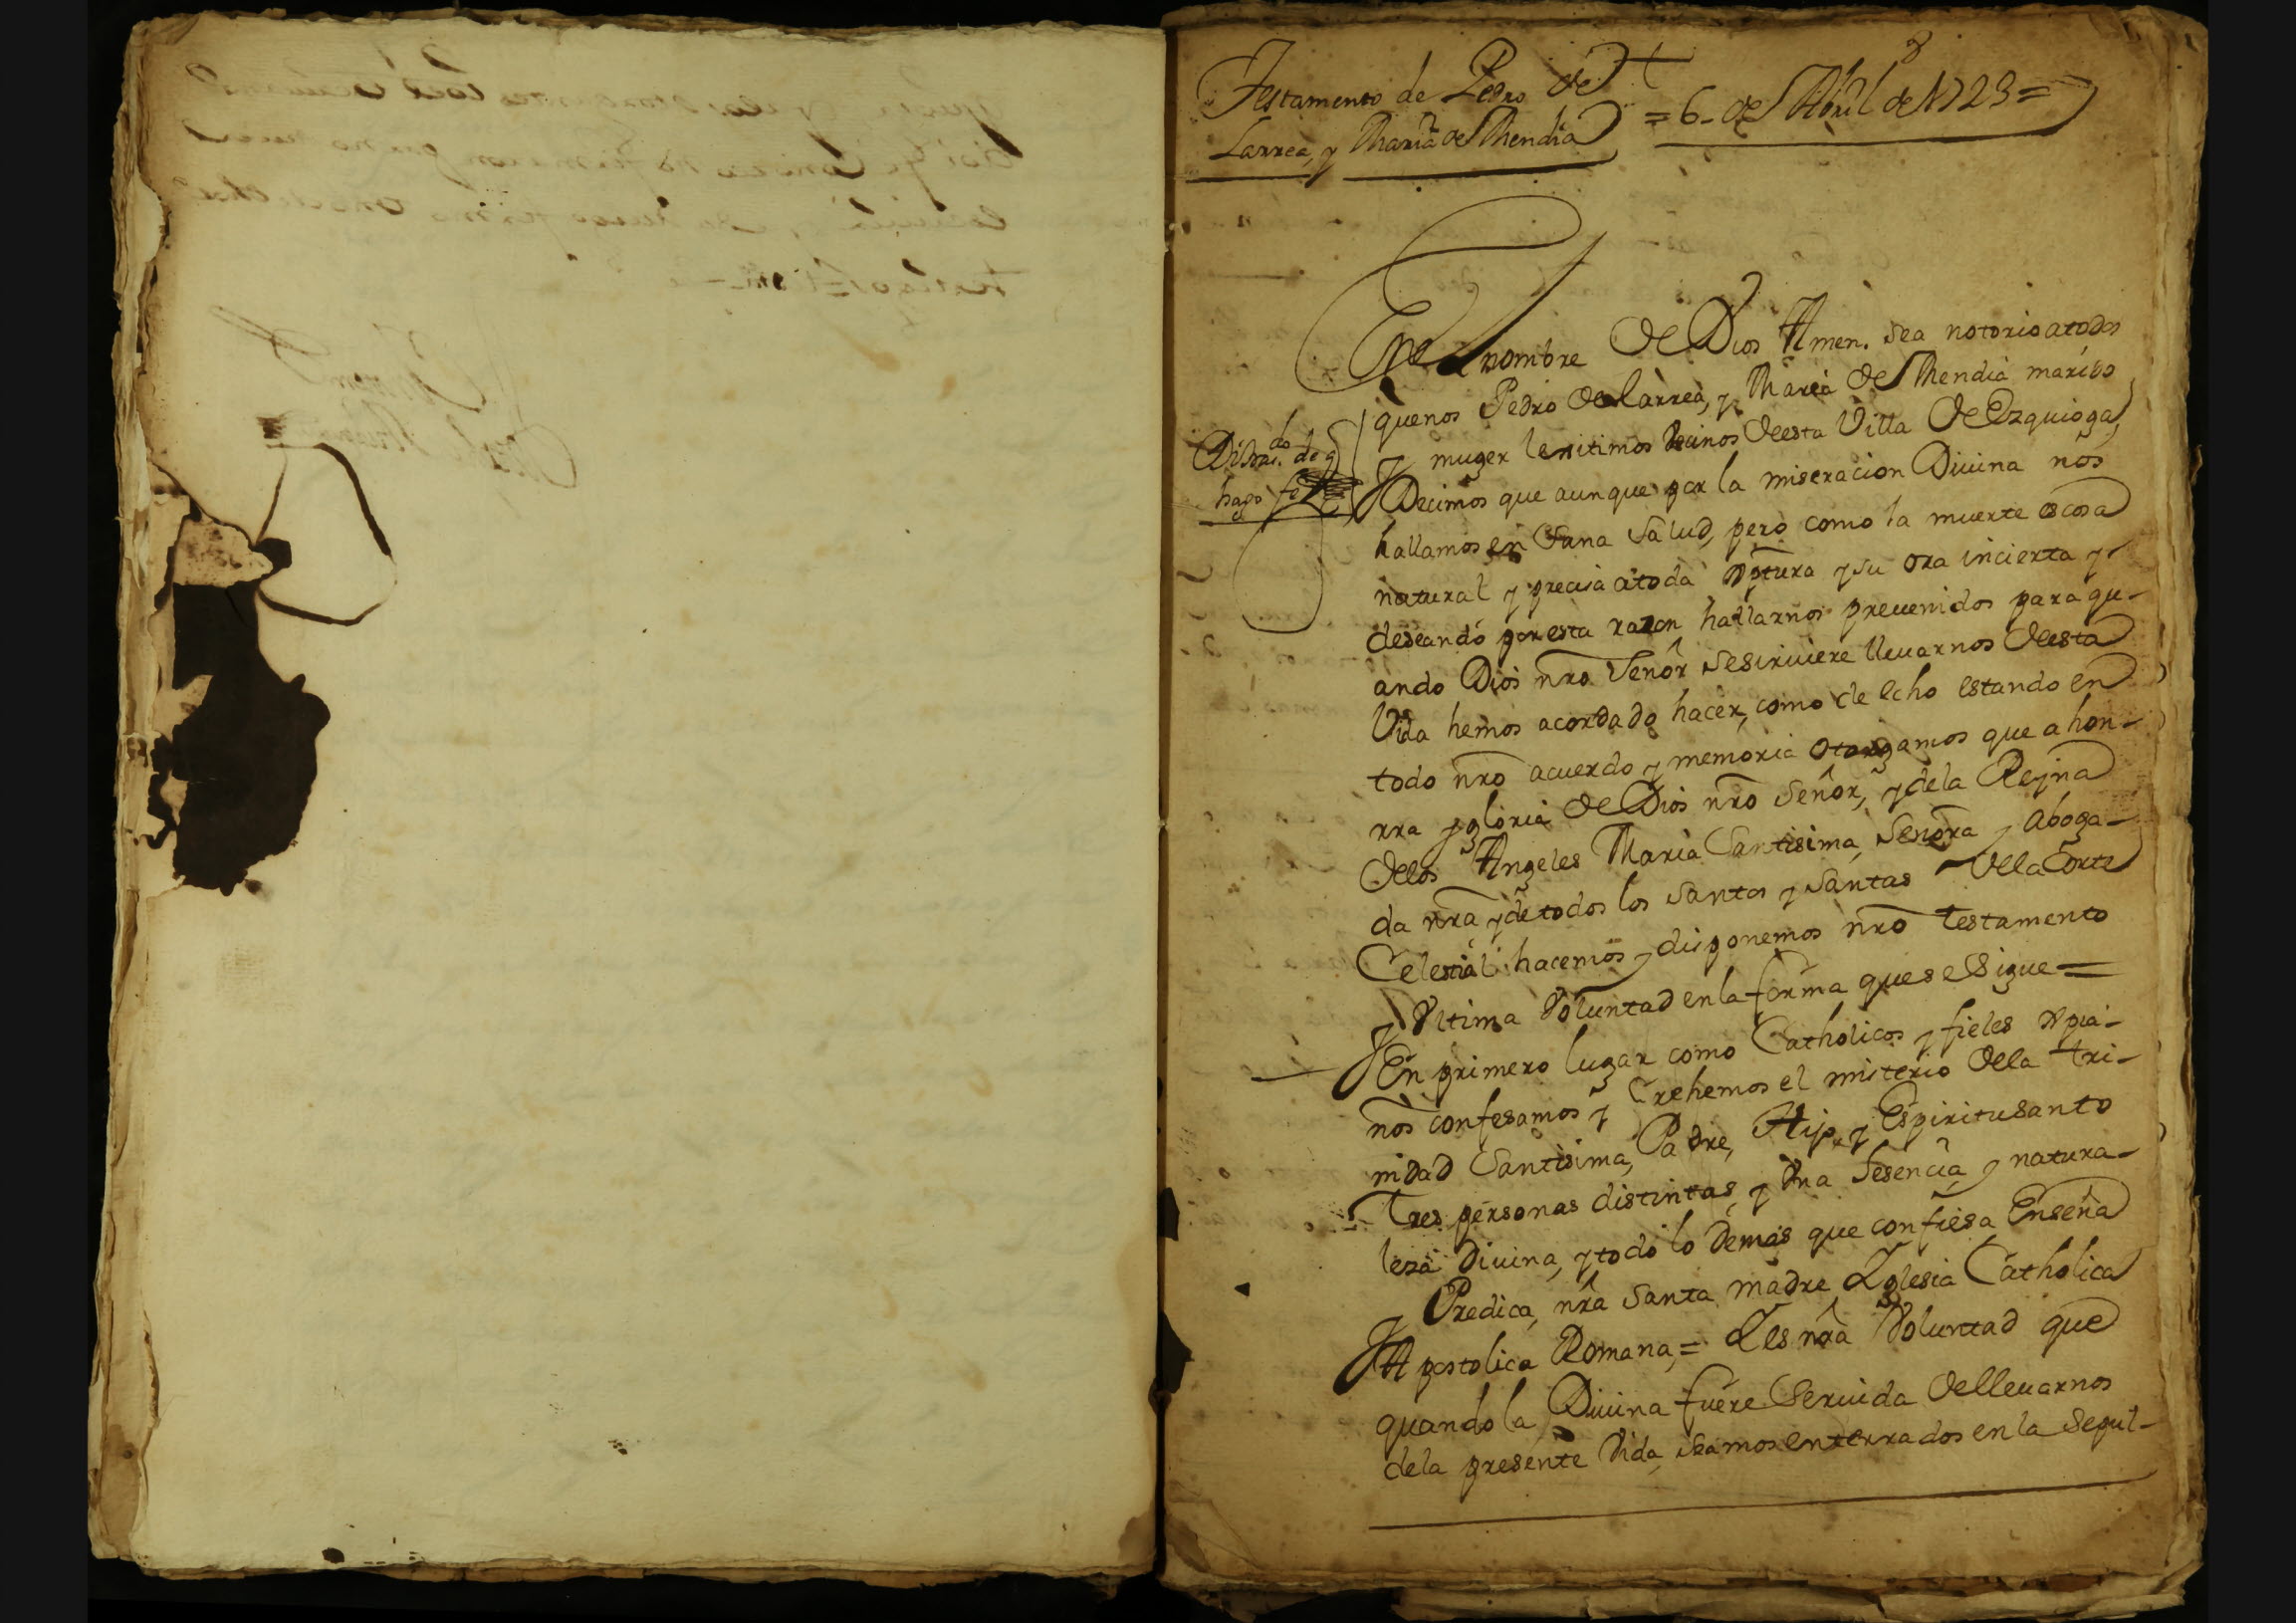 Testamento de Pedro de
Larrea, y Maria de Mendia
= 6 - de Abril de 1723 =
En el nombre de Dios Amen. Sea notorio atodos
quenos Pedro de Larrea, y Maria de Mendia marido
y muger lexitimos vecinos deesta Villa de Ezquioga,
Decimos que aunque por la miseracion Diuina nos
hallamos en Sana Salud, pero como la muerte es cosa
natural y precisa atoda Xptura y su ora incierta y
deseando por esta razon hallarnos preuenidos para qu-
ando Dios nro Señor sesiruiere lleuarnos deesta
Vida hemos acordado hacer, como de echo estando en
todo nro acuerdo y memoria otorgamos que a hon-
rra y gloria de Dios nro Señor, y dela Reyna
delos Angeles Maria Santisima, Señora y Aboga-
da nra y de todos los Santos y Santas dela Corte
Celestial hacemos y disponemos nro testamento
y Vltima Voluntad enla forma quese Sigue =
En primero lugar como Catholicos y fieles Xpia-
nos confesamos y Crehemos el misterio dela tri-
nidad Santisima, Padre, Hijo, y Espiritu Santo
tres personas distintas, y Vna Esencia y natura-
leza Diuina, y todo lo demas que confiesa Enseña
y Predica, nra Santa madre Yglesia Catholica
Apostolica Romana, = Yes nra Voluntad que
quando la Diuina fuere Seruida de lleuarnos
dela presente Vida, seamos enterrados en la Sepul-
hago fe